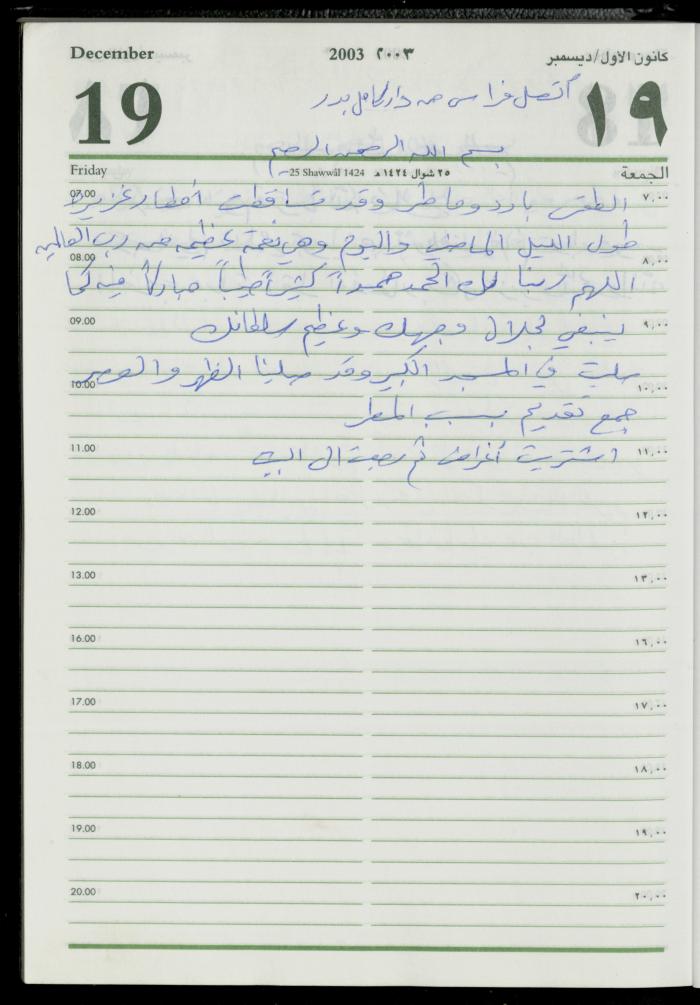 December 2003 ٢٠٠٣ كانون الأول/ديسمبر
19 ١٩
أتصل فراس من دار كامل بدر
بسم الله الرحمن الرحيم
Friday 25 Shawwâl 1424 ٢٥ شوال ١٤٢٤ هـ الجمعة
07.00 الطقس بارد وماطر وقد تساقطت أمطار غزيرة ٧,٠٠
طول الليل الماضي واليوم وهي نعمة عظيمة من رب العالمين
08.00 ٨,٠٠
اللهم ربنا لك الحمد حمداً كثيراً طيباً مباركاً فيه كما
09.00 ينبغي لجلال وجهك وعظيم سلطانك ٩,٠٠
صليت في المسجد الكبير وقد صلينا الظهر والعصر
10.00 ١٠,٠٠
جمع تقديم بسبب المطر
11.00 اشتريت أغراض ثم رجعت الى البيت ١١,٠٠
12.00 ١٢,٠٠
13.00 ١٣,٠٠
16.00 ١٦,٠٠
17.00 ١٧,٠٠
18.00 ١٨,٠٠
19.00 ١٩,٠٠
20.00 ٢٠,٠٠